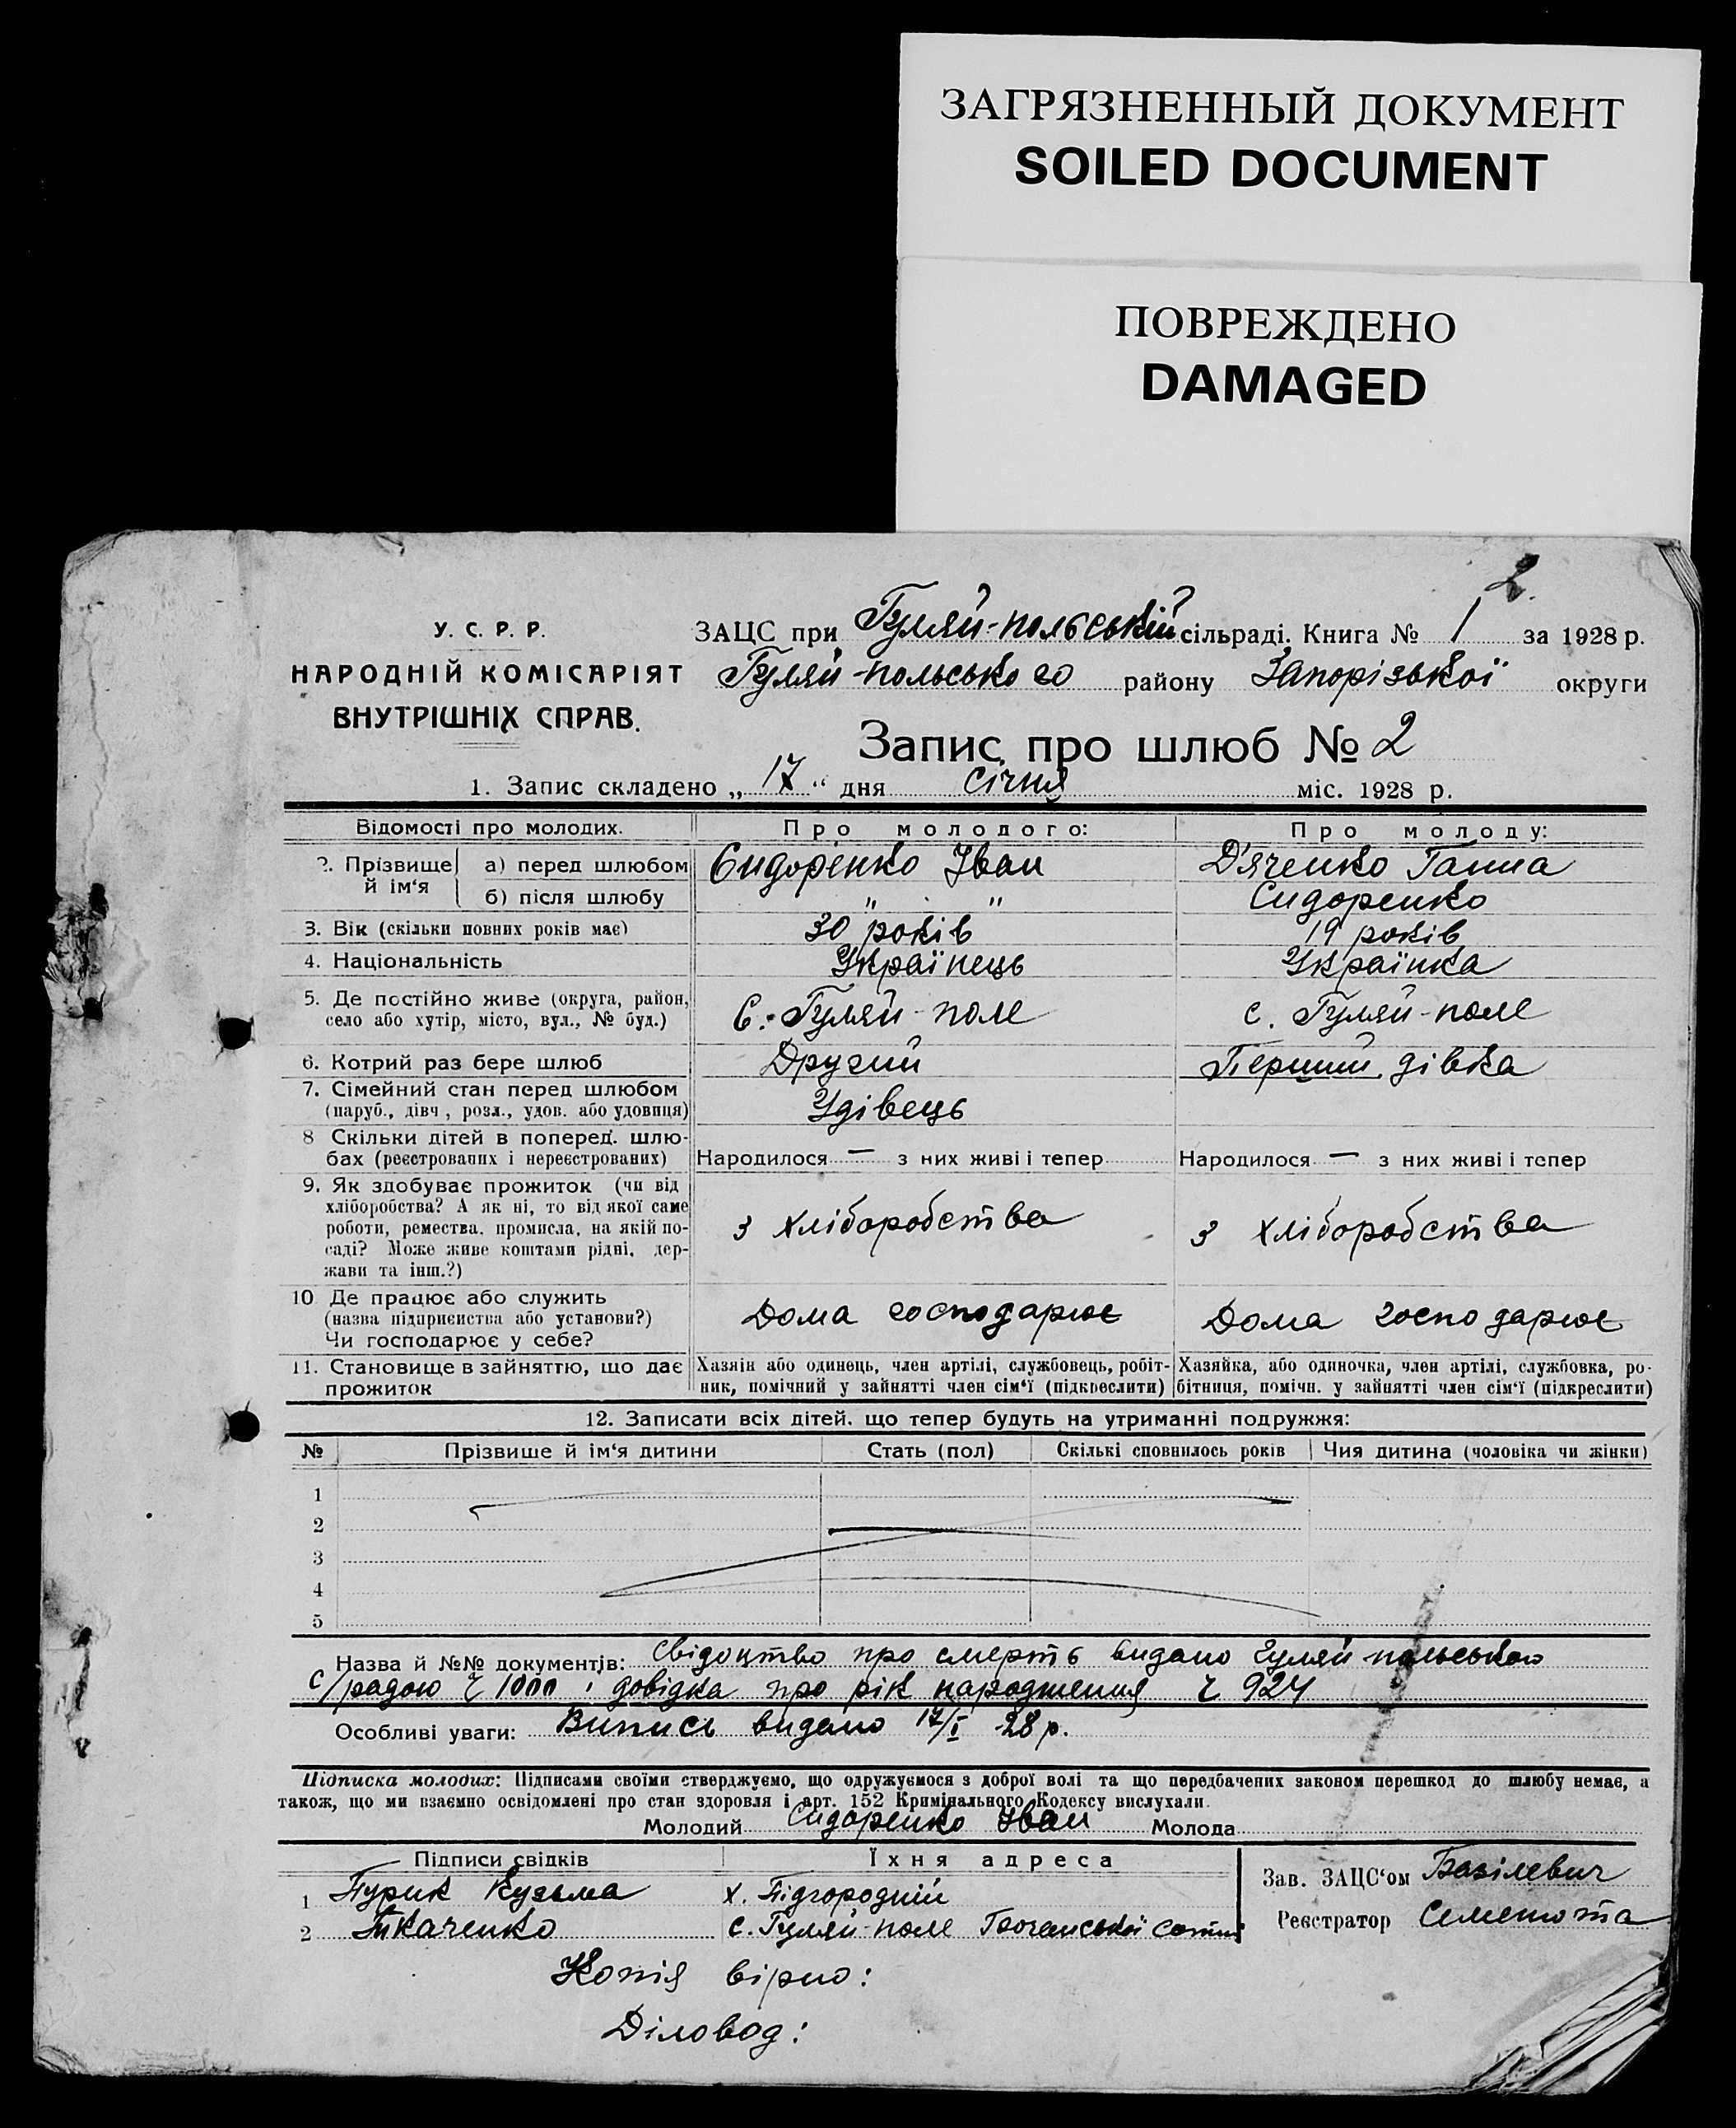 ЗАГРЯЗНЕННЫЙ ДОКУМЕНТ
SOILED DOCUMENT
ПОВРЕЖДЕНО
DAMAGED
2.
У. С. Р. Р.
НАРОДНІЙ КОМІСАРІЯТ
ВНУТРІШНІХ СПРАВ.
ЗАЦС при Гуляй-польській сільраді. Книга № 1 за 1928 р.
Гуляй-польського району Запорізької округи
Запис про шлюб № 2
1. Запис складено „ 17 “ дня січня міс. 1928 р.
Відомості про молодих. Про молодого: Про молоду:
2. Прізвище й ім‘я а) перед шлюбом Сидоренко Іван Дяченко Ганна
б) після шлюбу " " Сидоренко
3. Вік (скільки повних років має) 30 років 19 років
4. Національність Українець Українка
5. Де постійно живе (округа, район, село або хутір, місто, вул., № буд.) С. Гуляй-поле с. Гуляй-поле
6. Котрий раз бере шлюб Другий Перший, дівка
7. Сімейний стан перед шлюбом (паруб., дівч, розл., удов. або удовиця) Удівець
8 Скільки дітей в поперед. шлюбах (реєстрованих і нереєстрованих) Народилося — з них живі і тепер Народилося — з них живі і тепер
9. Як здобуває прожиток (чи від
хліборобства? А як ні, то від якої саме
роботи, ремества, промисла, на якій по-
саді? Може живе коштами рідні, дер-
жави та інш.?)
з хліборобства з хліборобства
10 Де працює або служить
(назва підприємства або установи?)
Чи господарює у себе?
Дома господарює Дома господарює
11. Становище в зайняттю, що дає прожиток
Хазяїн або одинець, член артілі, службовець, робіт-
ник, помічний у зайнятті член сім‘ї (підкреслити)
Хазяйка, або одиночка, член артілі, службовка, ро-
бітниця, помічн. у зайнятті член сім‘ї (підкреслити)
12. Записати всіх дітей, що тепер будуть на утриманні подружжя:
№ Прізвише й ім‘я дитини Стать (пол) Скількі сповнилось років Чия дитина (чоловіка чи жінки)
1
2
3
4
5
Назва й №№ документів: Свідоцтво про смерть видано Гуляй-польською
с/радою ч 1000 і довідка про рік народження ч 924
Особливі уваги: Випись видано 17/I 28 р.
Підписка молодих: Підписами своїми стверджуємо, що одружуємося з доброї волі та що передбачених законом перешкод до шлюбу немає, а
також, що ми взаємно освідомлені про стан здоровля і арт. 152 Кримінального Кодексу вислухали.
Молодий Сидоренко Іван Молода
Підписи свідків Їхня адреса
1 Пурик Кузьма х. Підгородній
2 Ткаченко с. Гуляй-поле сотні
Зав. ЗАЦС‘ом Базілевич
Реєстратор Семенота
Копія вірно:
Діловод: